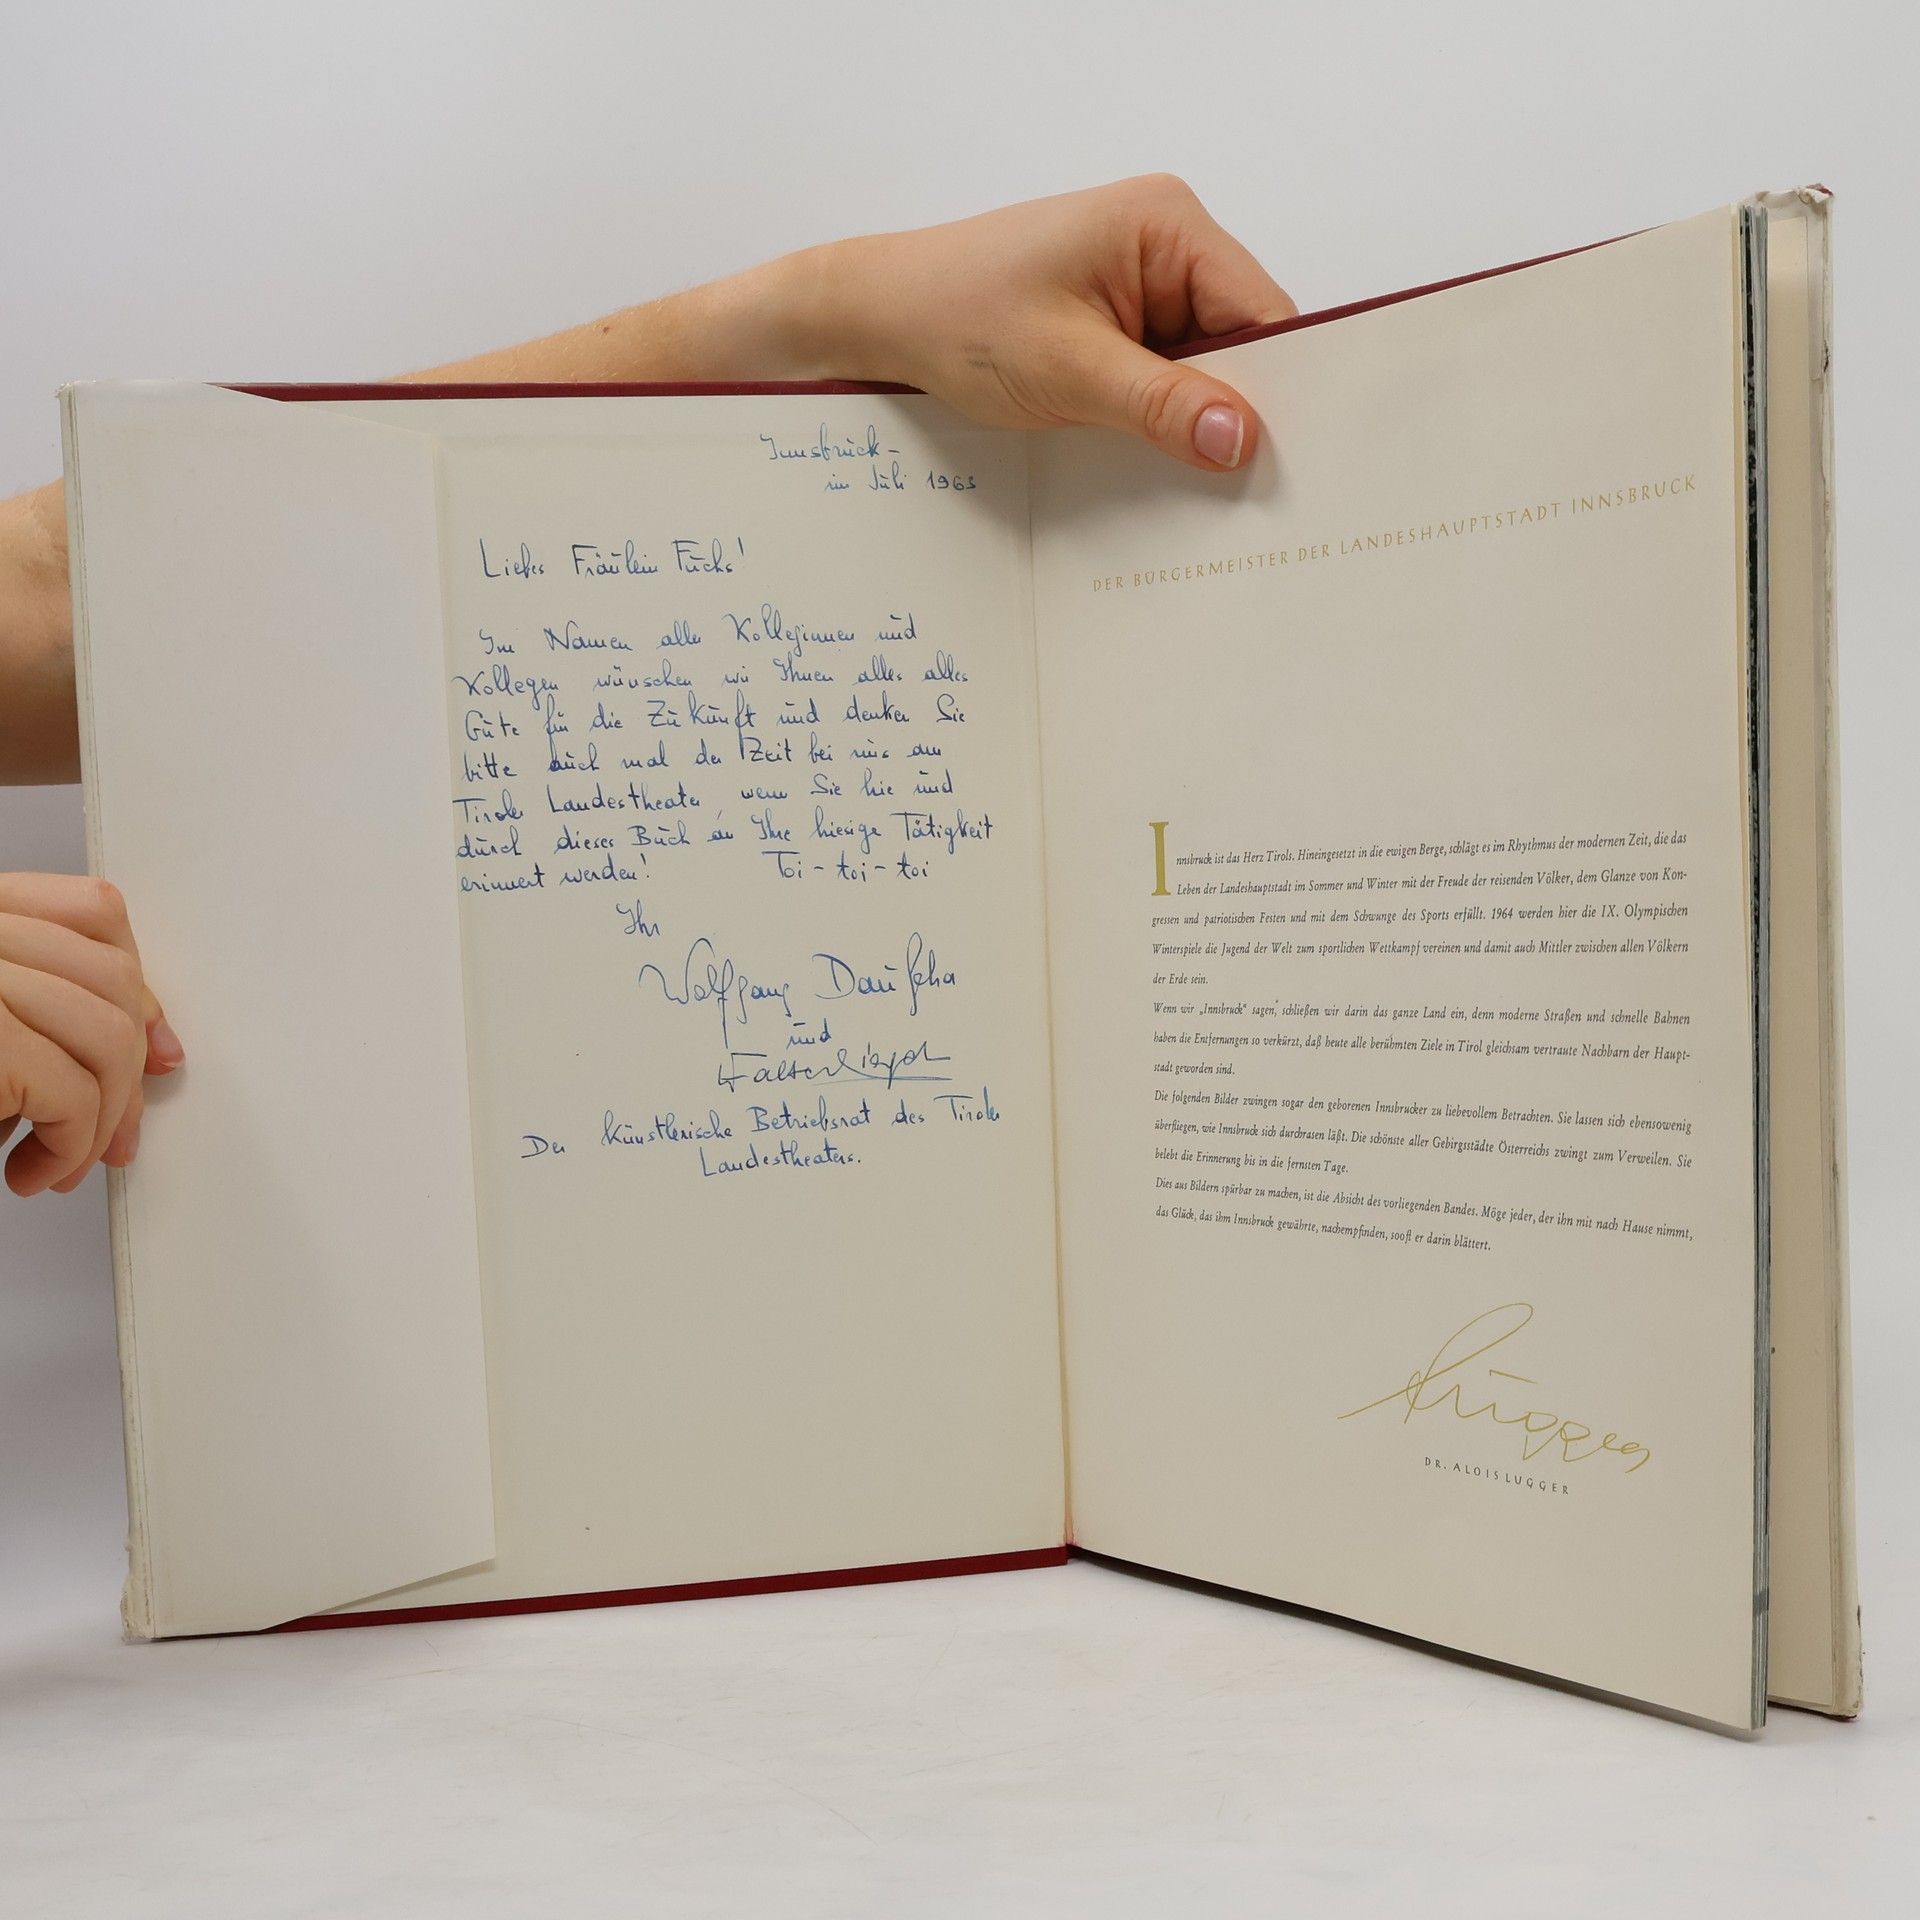 Innsbruck –
im Juli 1963
Liebes Fräulein Fuchs!
Im Namen aller Kolleginnen und
Kollegen wünschen wir Ihnen alles alles
Gute für die Zukunft und denken Sie
bitte auch mal der Zeit bei uns am
Tiroler Landestheater, wenn Sie hie und
durch dieses Buch an Ihre hiesige Tätigkeit
erinnert werden! Toi – toi – toi
Ihr
Wolfgang
und
Walter
Der künstlerische Betriebsrat des Tiroler
Landestheaters.
DER BÜRGERMEISTER DER LANDESHAUPTSTADT INNSBRUCK
Innsbruck ist das Herz Tirols. Hineingesetzt in die ewigen Berge, schlägt es im Rhythmus der modernen Zeit, die das
Leben der Landeshauptstadt im Sommer und Winter mit der Freude der reisenden Völker, dem Glanze von Kon-
gressen und patriotischen Festen und mit dem Schwunge des Sports erfüllt. 1964 werden hier die IX. Olympischen
Winterspiele die Jugend der Welt zum sportlichen Wettkampf vereinen und damit auch Mittler zwischen allen Völkern
der Erde sein.
Wenn wir „Innsbruck“ sagen, schließen wir darin das ganze Land ein, denn moderne Straßen und schnelle Bahnen
haben die Entfernungen so verkürzt, daß heute alle berühmten Ziele in Tirol gleichsam vertraute Nachbarn der Haupt-
stadt geworden sind.
Die folgenden Bilder zwingen sogar den geborenen Innsbrucker zu liebevollem Betrachten. Sie lassen sich ebensowenig
überfliegen, wie Innsbruck sich durchrasen läßt. Die schönste aller Gebirgsstädte Österreichs zwingt zum Verweilen. Sie
belebt die Erinnerung bis in die fernsten Tage.
Dies aus Bildern spürbar zu machen, ist die Absicht des vorliegenden Bandes. Möge jeder, der ihn mit nach Hause nimmt,
das Glück, das ihm Innsbruck gewährte, nachempfinden, sooft er darin blättert.
Lugger
DR. ALOIS LUGGER